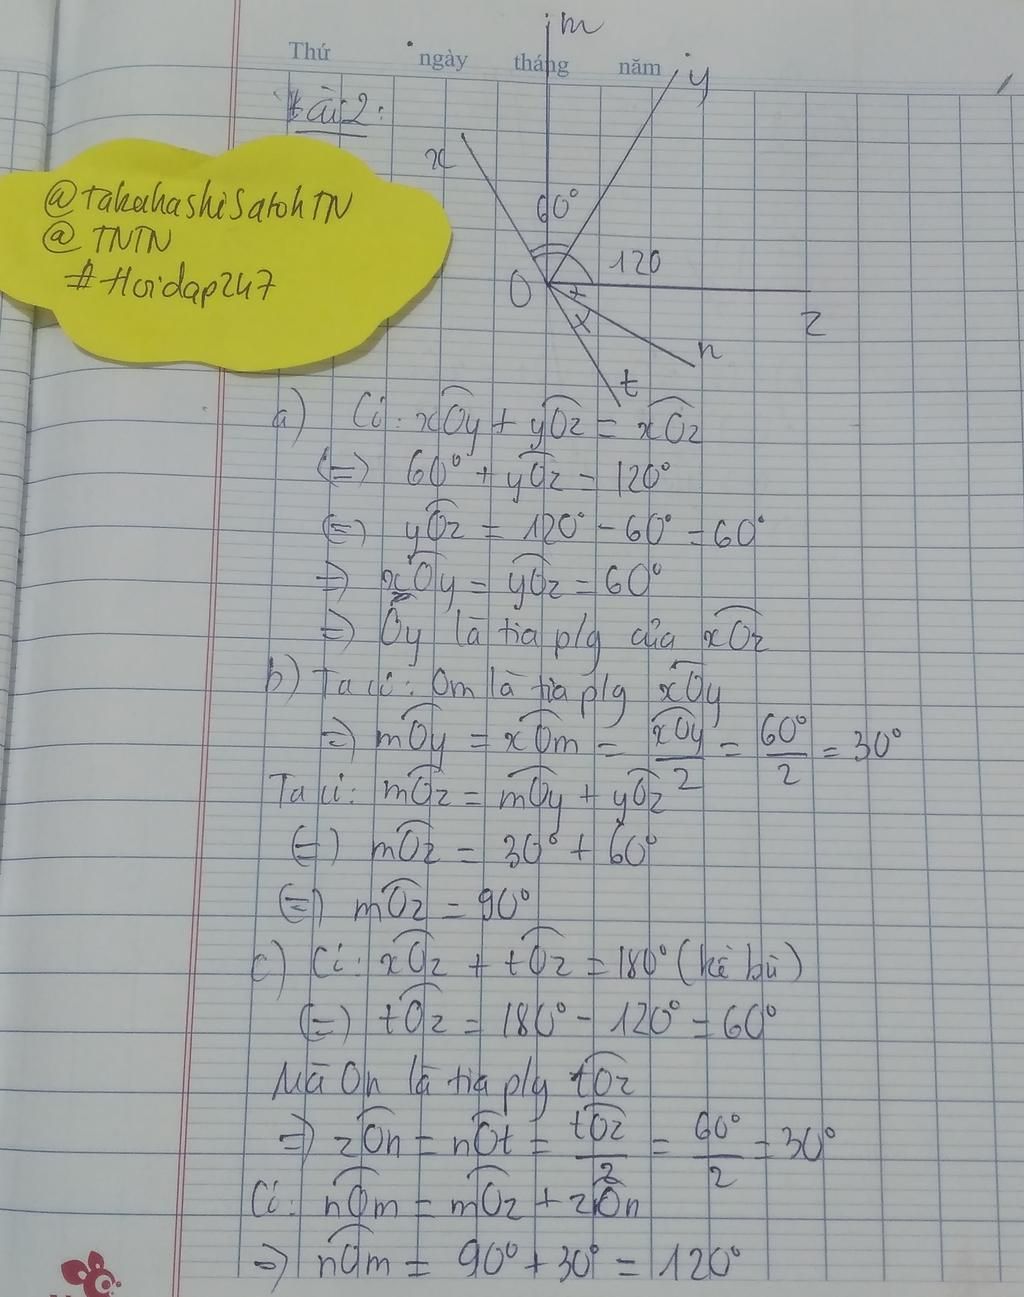 Thứ ngày tháng năm
m
y
Bài 2:
x
@TakahashiSatohTN
@ TNTN
#Hoidap247
60°
120
O
z
n
t
a) Có: xOy + yOz = xOz
(=) 60° + yOz = 120°
(=) yOz = 120° - 60° = 60°
=) xOy = yOz = 60°
=) Oy là tia p/g của xOz
b) Ta có: Om là tia p/g xOy
=) mOy = xOm = xOy/2 = 60°/2 = 30°
Ta có: mOz = mOy + yOz
(=) mOz = 30° + 60°
(=) mOz = 90°
c) Có: xOz + tOz = 180° (kề bù)
(=) tOz = 180° - 120° = 60°
Mà On là tia p/g tOz
=) zOn = nOt = tOz/2 = 60°/2 = 30°
Có: nOm = mOz + zOn
=) nOm = 90° + 30° = 120°